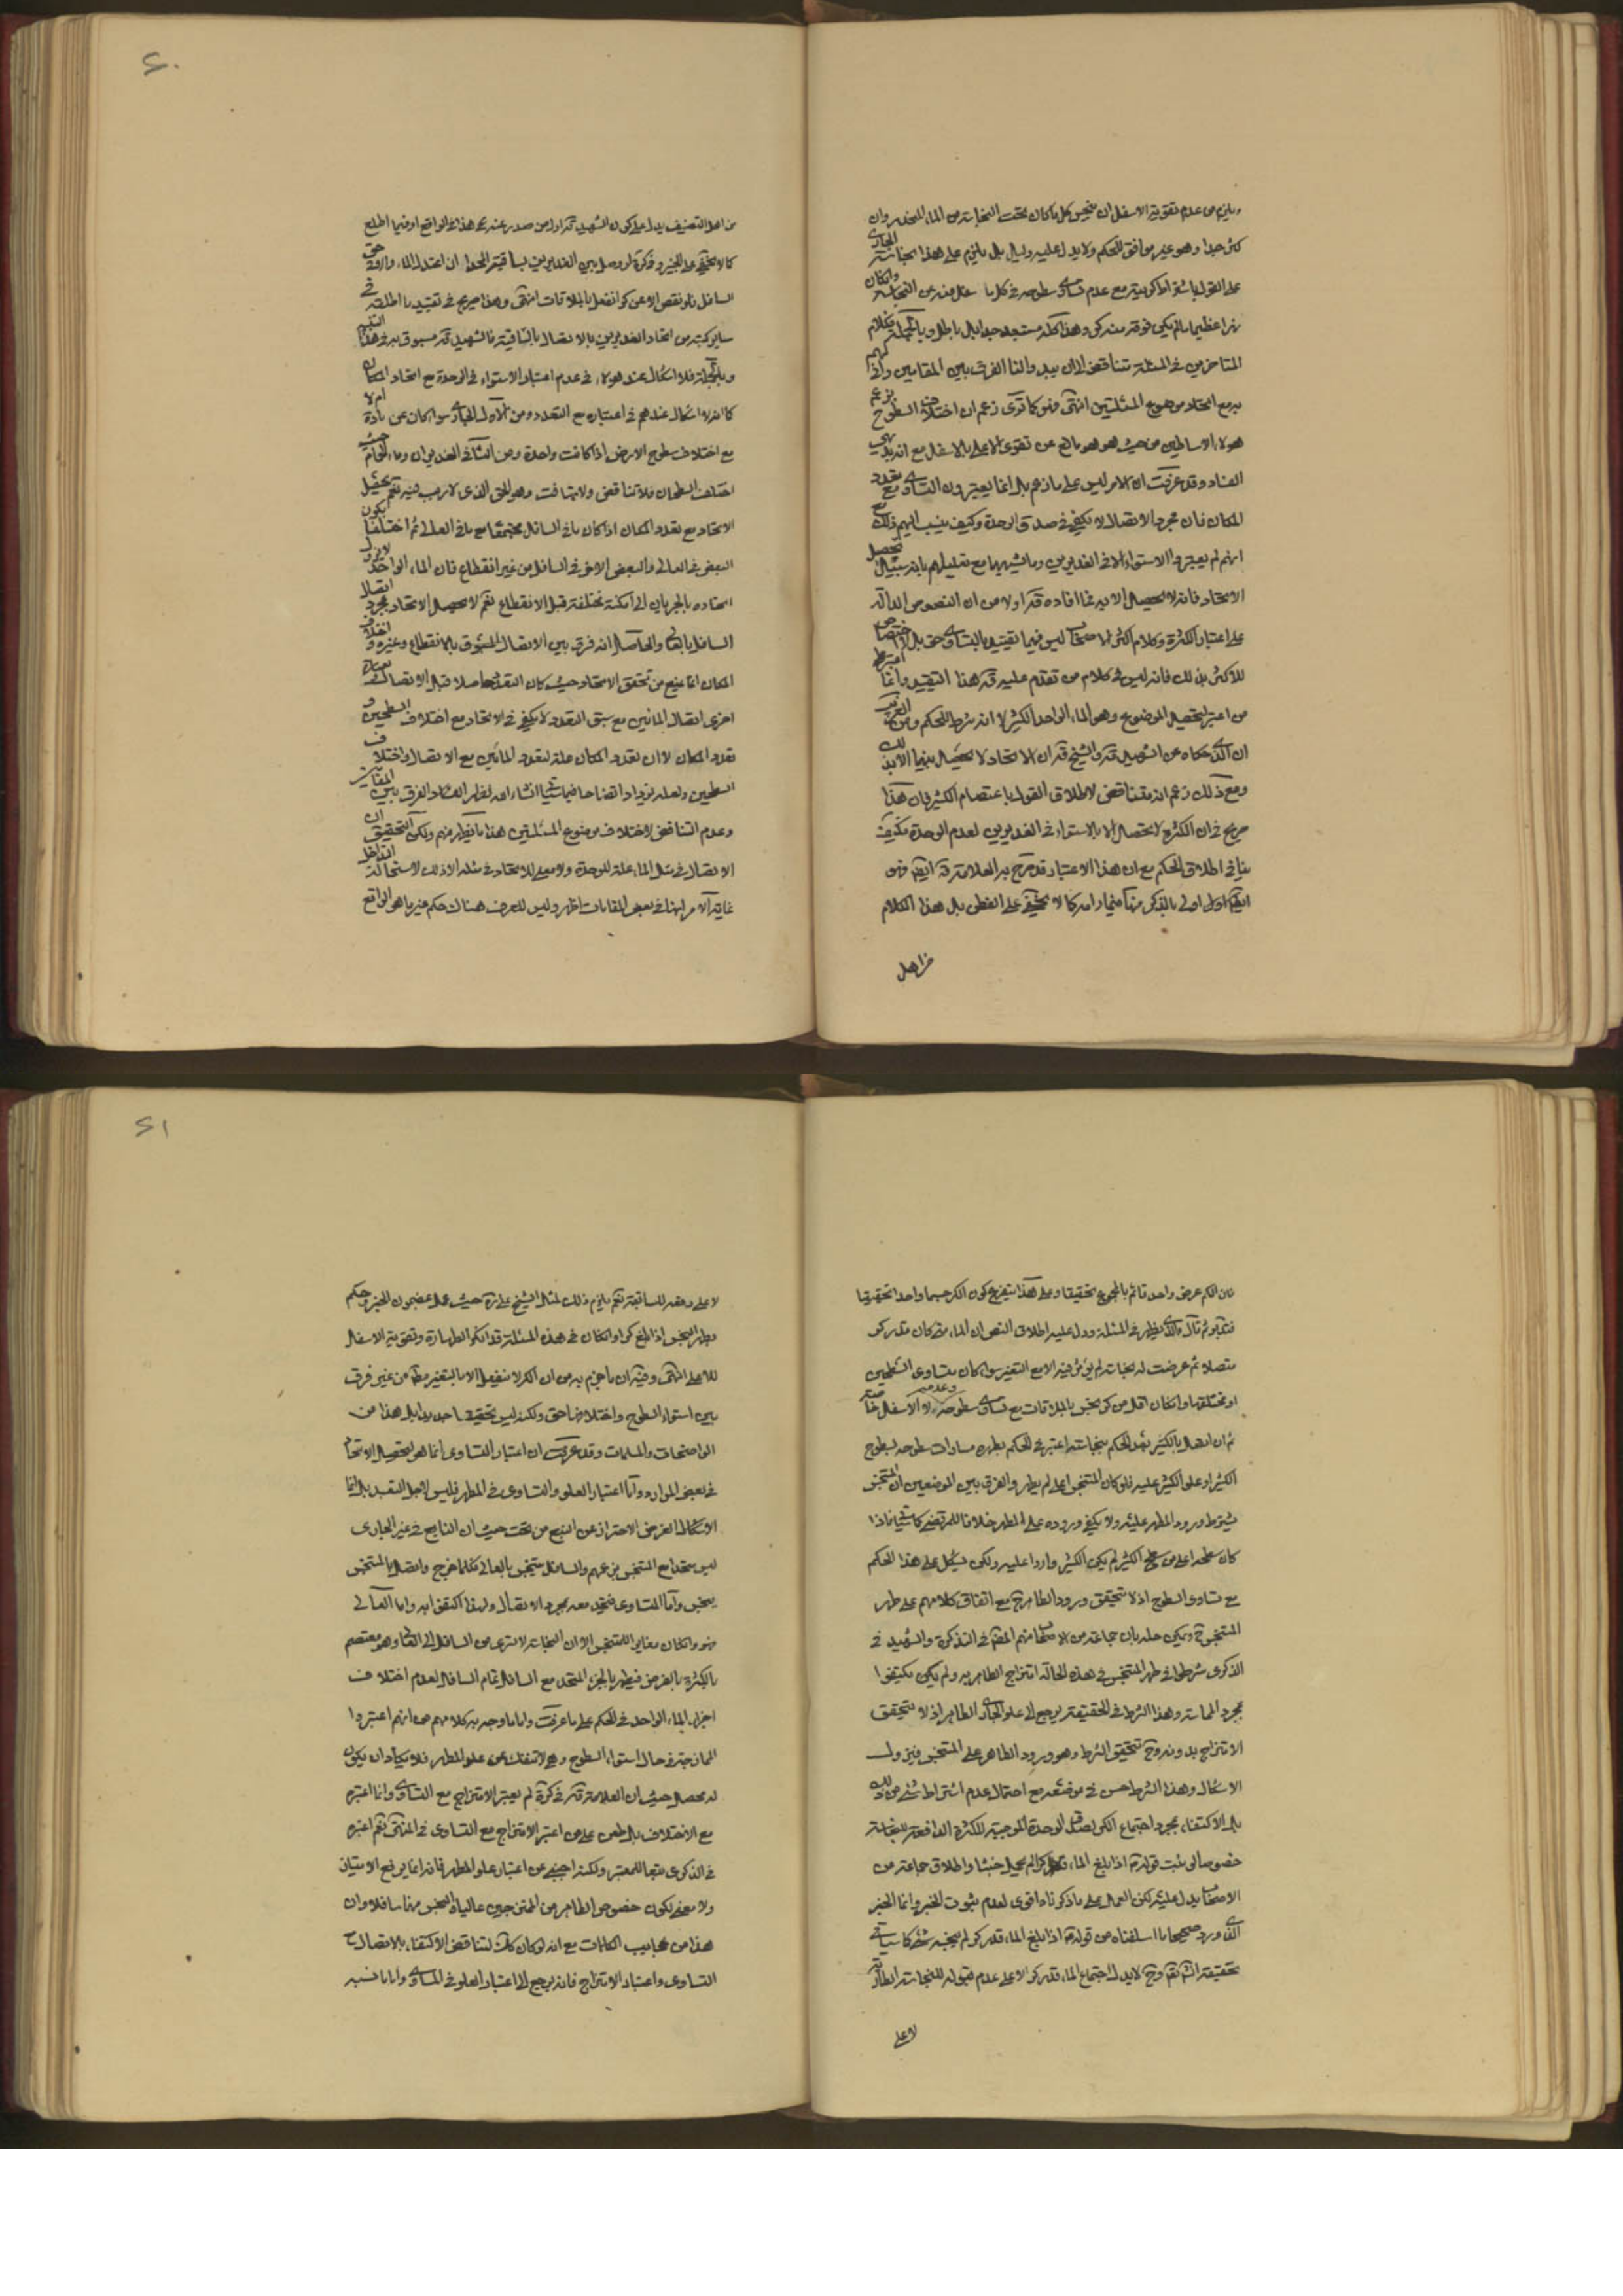 ويلزم من عدم تقوية الاسفل ان ينجس كل ما كان تحت النجاسة من الماء المنحدر وان
كثر جدا وهو غير موافق للحكم ولا يدل عليه دليل بل يلزم على هذا نجاسة الجاري
على القول باشتراط كريته مع عدم تساوي سطوحه في كل ما سفل منه عن النجاسة وان كان
نهرا عظيما ما لم يكن فوقه منه كر وهذا كله مستبعد جدا بل باطل وبالجملة فكلام
المتاخرين في المسئلة متناقض الا ان يبدو لنا الفرق بين المقامين واني لهم
به مع اتحاد موضوع المسئلتين انتهى وهو كما ترى زعم ان اختلاف السطوح بزعم
هؤلاء الاساطين من حيث هو هو مانع عن تقوى الاعلى بالاسفل مع انه بديهي
الفساد وقد عرفت ان الامر ليس على ما زعم بل انما يعتبرون التساوي مع تعدد
المكان فان مجرد الاتصال لا يكفي في صدق الوحدة وكيف ينسب اليهم ذلك مع
انهم لم يعتبروا الاستواء الا في الغديرين وما يشبههما مع تعليلهم بانه سبيل تحصيل
الاتحاد فانه لا يحصل الا به فما افاده قده اولا من ان النصوص الدالة
على اعتبار الكثرة وكلام اكثر الاصحاب ليس فيها تقييد بالتساوي حق بل لا اختصاص
للاكثر بذلك فانه ليس في كلام من تقدم عليه قده هذا التقييد وانما اعتبره
من اعتبر لتحصيل الموضوع وهو الماء الواحد الكثير لا انه شرط للحكم ومن الغريب
ان الذي حكاه عن الشهيد قده والشيخ قده ان الاتحاد لا يحصل بينهما الا بذلك
ومع ذلك زعم انه متناقض لاطلاق القول باعتصام الكثير فان هذا
صريح في ان الكثرة لا تحصل الا بالاستواء في الغديرين لعدم الوحدة فكيف
ينافي اطلاق الحكم مع ان هذا الاعتبار قد صرح به العلامة قده ايضا فهو
ايضا اولى بالذكر منهما فيما رامه كما لا يخفى على الفطن بل هذا الكلام
من اهل
من اهل التصنيف يدل على كون الشهيد قده اول من صدر عنه هذا في الواقع او فيما اطلع
كما لا يخفى على الخبير وفي كره لو وصل بين الغديرين بساقية اتحدا ان اعتدل الماء والا ففي حق
السافل فلو نقص الاعلى عن كر انفعل بالملاقات انتهى وهذا صريح في تقييد ما اطلقه في
ساير كتبه من اتحاد الغديرين بالاتصال بالساقية فالشهيد قده مسبوق به في هذا التقييد
وبالجملة فلا اشكال عند هؤلاء في عدم اعتبار الاستواء في الوحدة مع اتحاد المكان
كما انه لا اشكال عندهم في اعتباره مع التعدد ومن الاول الجاري سواء كان عن مادة ام لا
مع اختلاف سطوح الارض اذا كانت واحدة ومن الثاني الغديران وماء الحمام حيث
اختلف السطحان فلا تناقض ولا تهافت وهو الحق الذي لا ريب فيه نعم يحصل
الاتحاد مع تعدد المكان اذا كان ما في السافل مجتمعا مع ما في العالي ثم اختلفا بكون
البعض في العالي والبعض الاخر في السافل من غير انقطاع فان الماء الواحد لا يزول
اتحاده بالجريان الى امكنة مختلفة قبل الانقطاع نعم لا يحصل الاتحاد بمجرد اتصال
السافل بالعالي والحاصل انه فرق بين الاتصال المسبوق بالانقطاع وغيره واختلاف
المكان انما يمنع من تحقق الاتحاد حيث كان التعدد حاصلا قبل الاتصال وبعبارة
اخرى اتصال المائين مع سبق التعدد لا يكفي في الاتحاد مع اختلاف السطحين و
تعدد المكان لا ان تعدد المكان علة لتعدد المائين مع الاتصال واختلاف
السطحين ولعله يزداد اتضاحا فيما سيأتي انشاء الله فظهر الفساد الفرق بين المقامين
وعدم التناقض لاختلاف موضوع المسئلتين هذا ما يظهر منهم ولكن التحقيق ان
الاتصال في مثل الماء علة للوحدة ولا معنى للاتحاد في مثله الا ذلك لاستحالة التداخل
غاية الامر انها في بعض المقامات اظهر وليس للعرف هناك حكم غير ما هو الواقع
فان الكم عرض واحد قائم بالمجموع تحقيقا وعلى هذا يتفرع كون الكر جسما واحدا تحقيقيا
فتدبر ثم قال والذي يظهر في المسئلة ودل عليه اطلاق النص ان الماء متى كان قدر كر
متصلا ثم عرضت له النجاسة لم يؤثر فيه الا مع التغير سواء كان متساوي السطحين
او مختلفهما وان كان اقل من كر نجس بالملاقات مع تساوي سطوحه وعدمه والا الاسفل خاصة
ثم ان اتصل بالكثير بعد الحكم بنجاسته اعتبر في الحكم بطهره مساوات سطوحه لسطوح
الكثير او علو الكثير عليه فلو كان المتنجس اعلى لم يطهر والفرق بين الموضعين ان المتنجس
يشترط ورود المطهر عليه ولا يكفي وروده على المطهر خلافا للمرتضى كما سيأتي فاذا
كان سطحه اعلى من سطح الكثير لم يكن الكثير واردا عليه ولكن يشكل على هذا الحكم
مع تساوى السطوح اذ لا يتحقق ورود الطاهر ح مع اتفاق كلامهم على طهر
المتنجس ح ويمكن حله بان جماعة من الاصحاب منهم المصنف في التذكرة والشهيد في
الذكرى شرطوا في طهر المتنجس في هذه الحالة امتزاج الطاهر به ولم يكن يكتفوا
بمجرد المماسة وهذا الشرط في الحقيقة يرجع الى علو الجاري الطاهر اذ لا يتحقق
الامتزاج بدونه وح تتحقق الشرط وهو ورود الطاهر على المتنجس فيزول
الاشكال وهذا الشرط حسن في موضعه مع احتمال عدم اشتراط شئ من ذلك
بل الاكتفاء بمجرد اجتماع الكر لصدق الوحدة الموجبة للكثرة الدافعة للنجاسة
خصوصا لو ثبت قوله ع اذا بلغ الماء كرا لم يحمل خبثا واطلاق جماعة من
الاصحاب يدل عليه لكن العمل على ما ذكرناه اقوى لعدم ثبوت الخبر وانما الخبر
الذي ورد صحيحا ما اسلفناه من قوله ع اذا بلغ الماء قدر كر لم ينجسه شئ كما سيأتي
تحقيقه انشاء الله تعالى وح لا يدل اجتماع الماء قدر كر الا على عدم قبوله للنجاسة الطارئة
لا على
لا على دفعه للسابقة نعم يلزم ذلك لمثل الشيخ علي ره حيث عمل بمضمون الخبر وحكم
بطهر النجس اذا بلغ كرا وان كان في هذه المسئلة قد انكر الطهارة وتقوية الاسفل
للاعلى انتهى وفيه ان ما جزم به من ان الكر لا ينفعل الا بالتغير مطلقا من غير فرق
بين استواء السطوح واختلافها حق ولكنه ليس تحقيقا جديدا بل هذا من
الواضحات والمسلمات وقد عرفت ان اعتبار التساوى انما هو لتحصيل الاتحاد
في بعض الموارد واما اعتبار العلو والتساوى في المطهر فليس لاجل التعبد بل انما
الاشكال الغرض الاحتراز عن النبع من تحت حيث ان النابع في غير الجارى
ليس متحدا مع المتنجس بزعمهم والسافل يتنجس بالعالي فكلما خرج واتصل بالمتنجس
ينجس واما المساوى فيتحد معه بمجرد الاتصال ولهذا اكتفى به واما العالي
فهو وان كان مغايرا للمتنجس الا ان النجاسة لا تسرى من السافل الى العالي وهو معتصم
بالكثرة بالفرض فيطهر بالجزء المتحد مع السافل تمام السافل لعدم اختلاف
اجزاء الماء الواحد في الحكم على ما عرفت واما ما وجه به كلامهم من انهم اعتبروا
الممازجة في حال استواء السطوح وهي لا تنفك عن علو المطهر فلا يكاد ان يكون
له محصل حيث ان العلامة قده في كره لم يعتبر الامتزاج مع التساوي وانما اعتبره
مع الاختلاف بل طعن على من اعتبر الامتزاج مع التساوى في المنتهى نعم اعتبره
في الذكرى تبعا للمعتبر ولكنه اجنبي عن اعتبار علو المطهر فانه انما يرفع الامتياز
ولا معنى لكون خصوص الطاهر من الممتزجين عاليا والنجس منهما سافلا وان
هذا من عجايب الكلمات مع انه لو كان كذلك لتناقض الاكتفاء بالاتصال ح
التساوى واعتبار الامتزاج فانه يرجع الى اعتبار العلو في المساوي واما ما نسبه